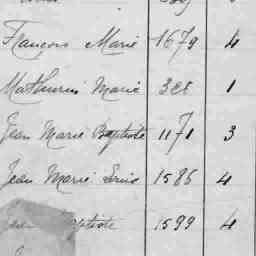 François Marie 1679 4
Mathurin Marie 328 1
Jean Marie Baptiste 1171 3
Jean Marie Louis 1585 4
Jean Baptiste 1599 4